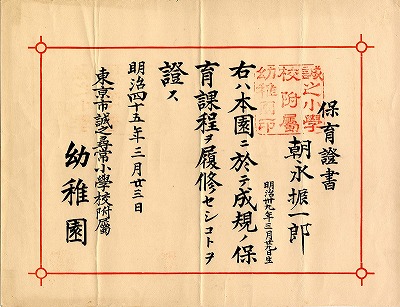 保育證書
誠之小學
校附屬
幼稚園印
朝永振一郎
明治卅九年三月卅一日生
右ハ本園ニ於テ成規ノ保
育課程ヲ履修セシコトヲ
證ス
明治四十五年三月廿三日
東京市誠之尋常小學校附屬
幼稚園